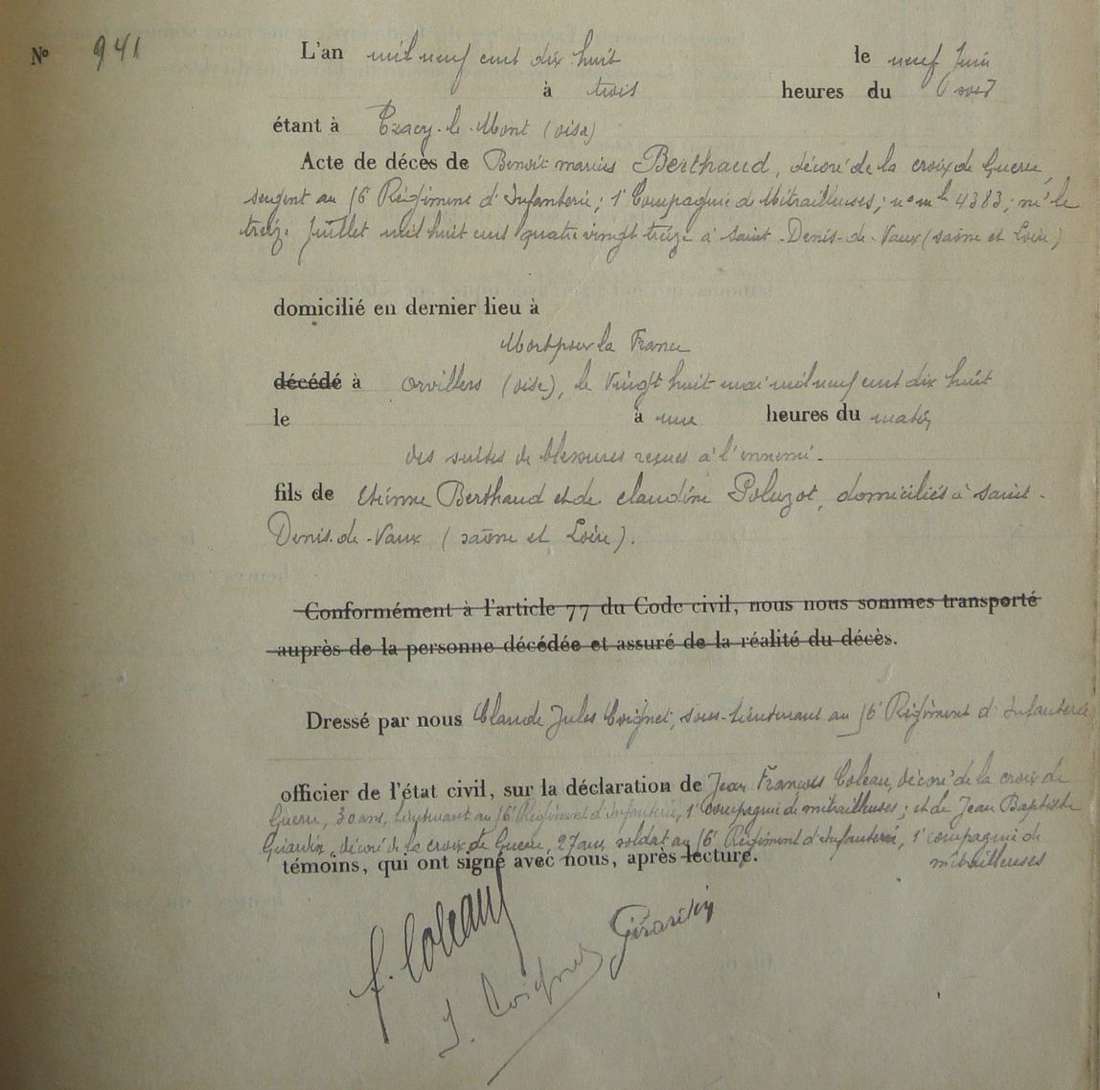 N° 941
L'an mil neuf cent dix huit le neuf Juin
à trois heures du soir
étant à Tracy-le-Mont (oise)
Acte de décès de Benoit marius Berthaud, décoré de la croix de Guerre,
sergent au 16e Régiment d'Infanterie; 1e Compagnie de Mitrailleuses; n° mle 4383; né le
treize Juillet mil huit cent quatre vingt treize à Saint-Denis-de-Vaux (saône et Loire)
domicilié en dernier lieu à
Mort pour la France
décédé à Orvillers (oise), le vingt huit mai mil neuf cent dix huit
le à une heures du matin
des suites de blessures reçues à l'ennemi.
fils de Etienne Berthaud et de Claudine Poluzot, domiciliés à saint-
Denis-de-Vaux (saône et Loire).
Conformément à l'article 77 du Code civil, nous nous sommes transporté
auprès de la personne décédée et assuré de la réalité du décès.
Dressé par nous Claude Jules Coignet, sous-lieutenant au 16e Régiment d'Infanterie
officier de l'état civil, sur la déclaration de Jean François Coleau, décoré de la croix de
Guerre, 30 ans, lieutenant au 16e Régiment d'infanterie, 1e compagnie de mitrailleuses; et de Jean Baptiste
décoré de la croix de Guerre, 27 ans, soldat au 16e Régiment d'Infanterie, 1e compagnie de
mitrailleuses
témoins, qui ont signé avec nous, après lecture.
f. Coleau
J. Coignet
Girardin